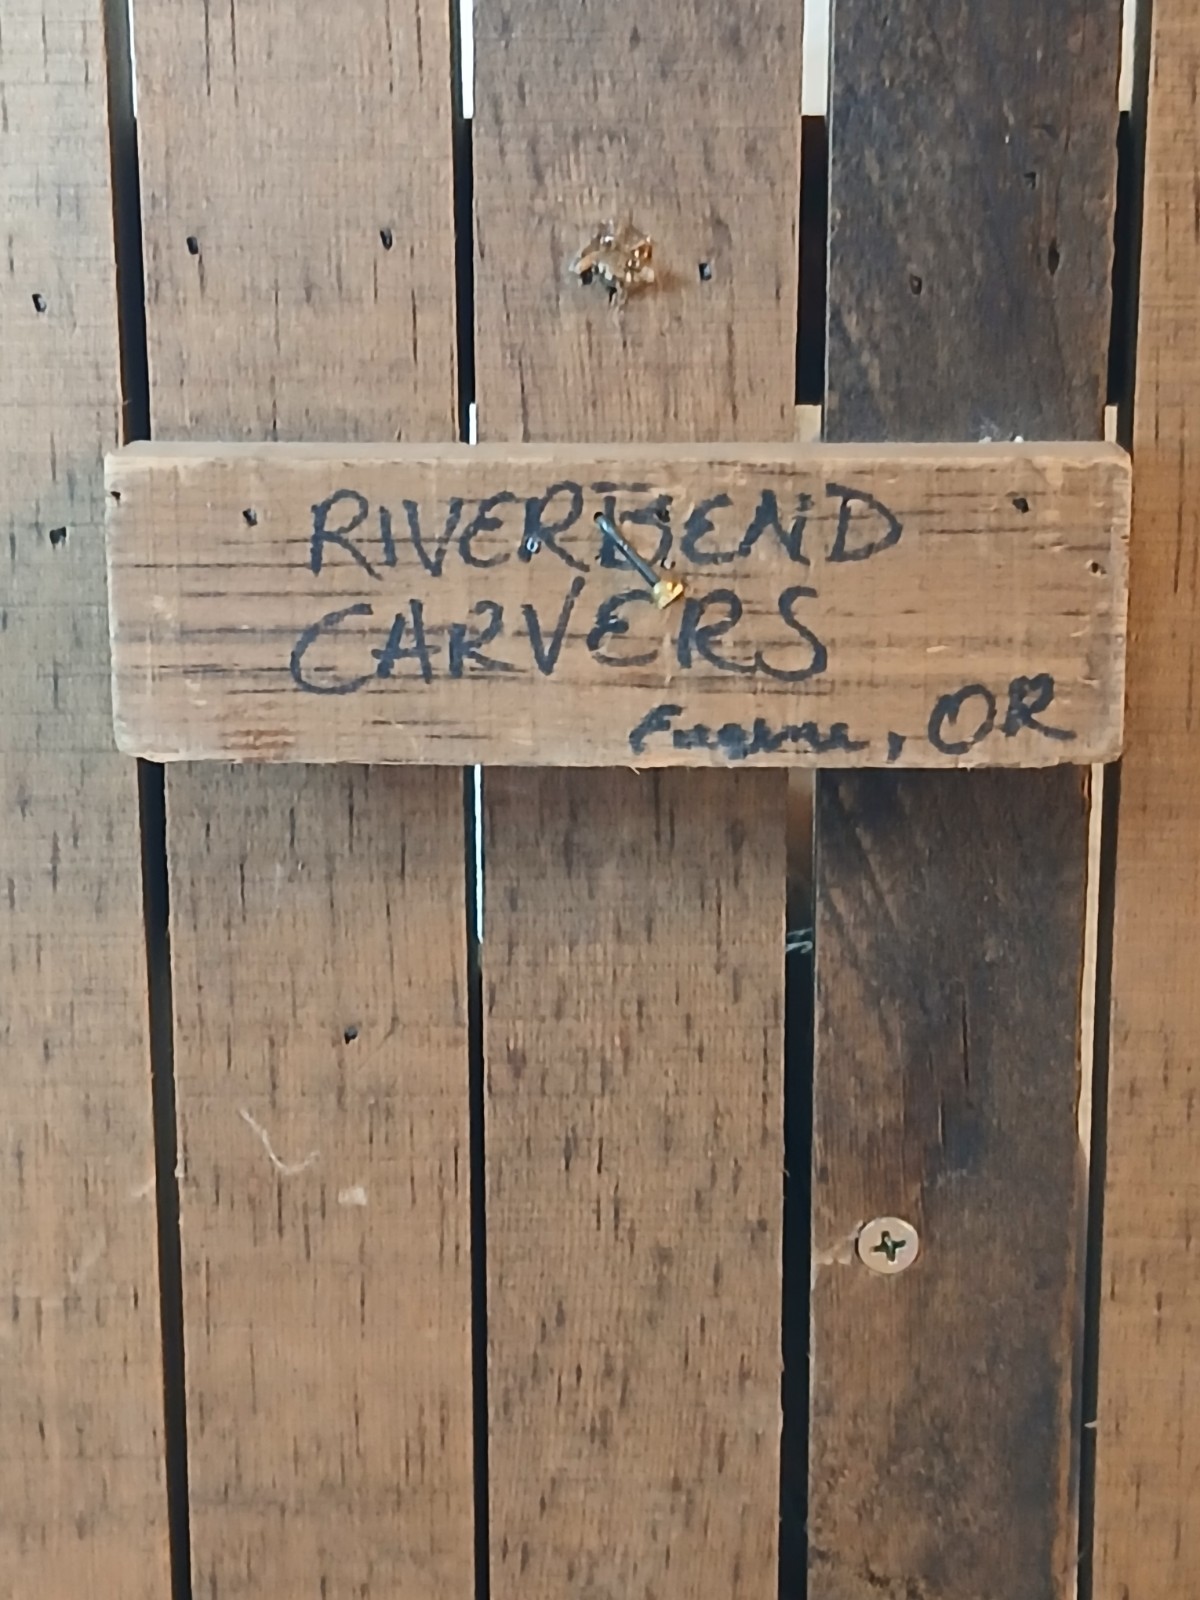 RIVERBEND
CARVERS
Eugene, OR